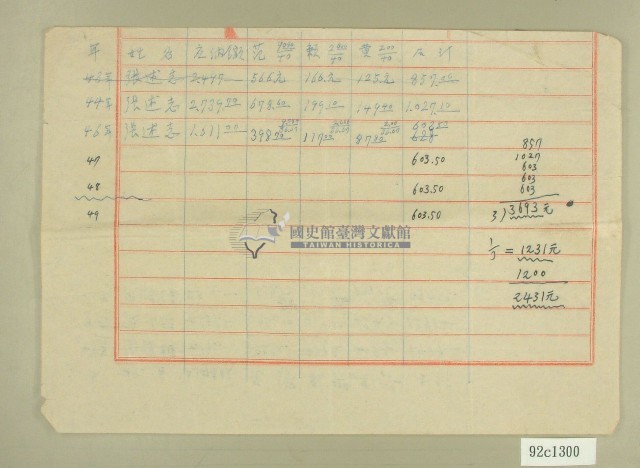 年 姓名 應納額 范 重 合計
43年 張述志 566元 166元 125元 857.00
44年 張述志 2739.00 678.00 199.00 149.00 1.027.10
46年 張述志 1.611.00 398.00 117.00 87.00
47 603.50
48 603.50
49 603.50
857
1027
603
603
603
3)3693元
1/3=1231元
1200
2431元
國史館臺灣文獻館
TAIWAN HISTORICA
92c1300